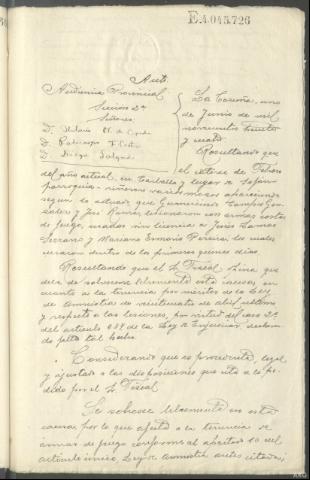 E.4.045.726
Auto.
Audiencia Provincial
Sección 2ª
Señores.
D. Hilario N. de Cepeda
D. Policarpo F. Costas
D. Diego Salgado
La Coruña, uno
de Junio de mil
novecientos treinta
y cuatro.
Resultando que
el catorce de Febrero
del año actual, en Carballo y lugar de
parroquia riñeron varios mozos apareciendo
según lo actuado que Gumersindo Campos Gon
zalez y José Ramos lesionaron con armas cortas
de fuego, usadas sin licencia a Jesús Ramos
Serrano y Mariano Pereira, los cuales
curaron dentro de los primeros quince días.
Resultando que el S. Fiscal dice que
debe de sobreseerse libremente esta causa, en
cuanto a la tenencia por méritos de la Ley
de amnistía de veinticuatro de abril último
y respecto a las lesiones, por virtud del caso 2º
del artículo 637 de la Ley de Enjuiciar, declaran
do falta tal hecho.
Considerando que es procedente, legal
y ajustado a las disposiciones que cita a lo pe
dido por el S. Fiscal
Se sobresee libremente en esta
causa, por lo que afecta a la tenencia de
armas de fuego conforme al apartado 10 del
artículo único, Ley de amnistía antes citada;